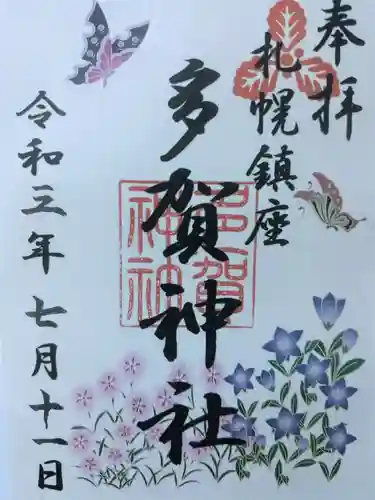 奉拝
札幌鎮座
多賀神社
多賀
神社
令和三年七月十一日